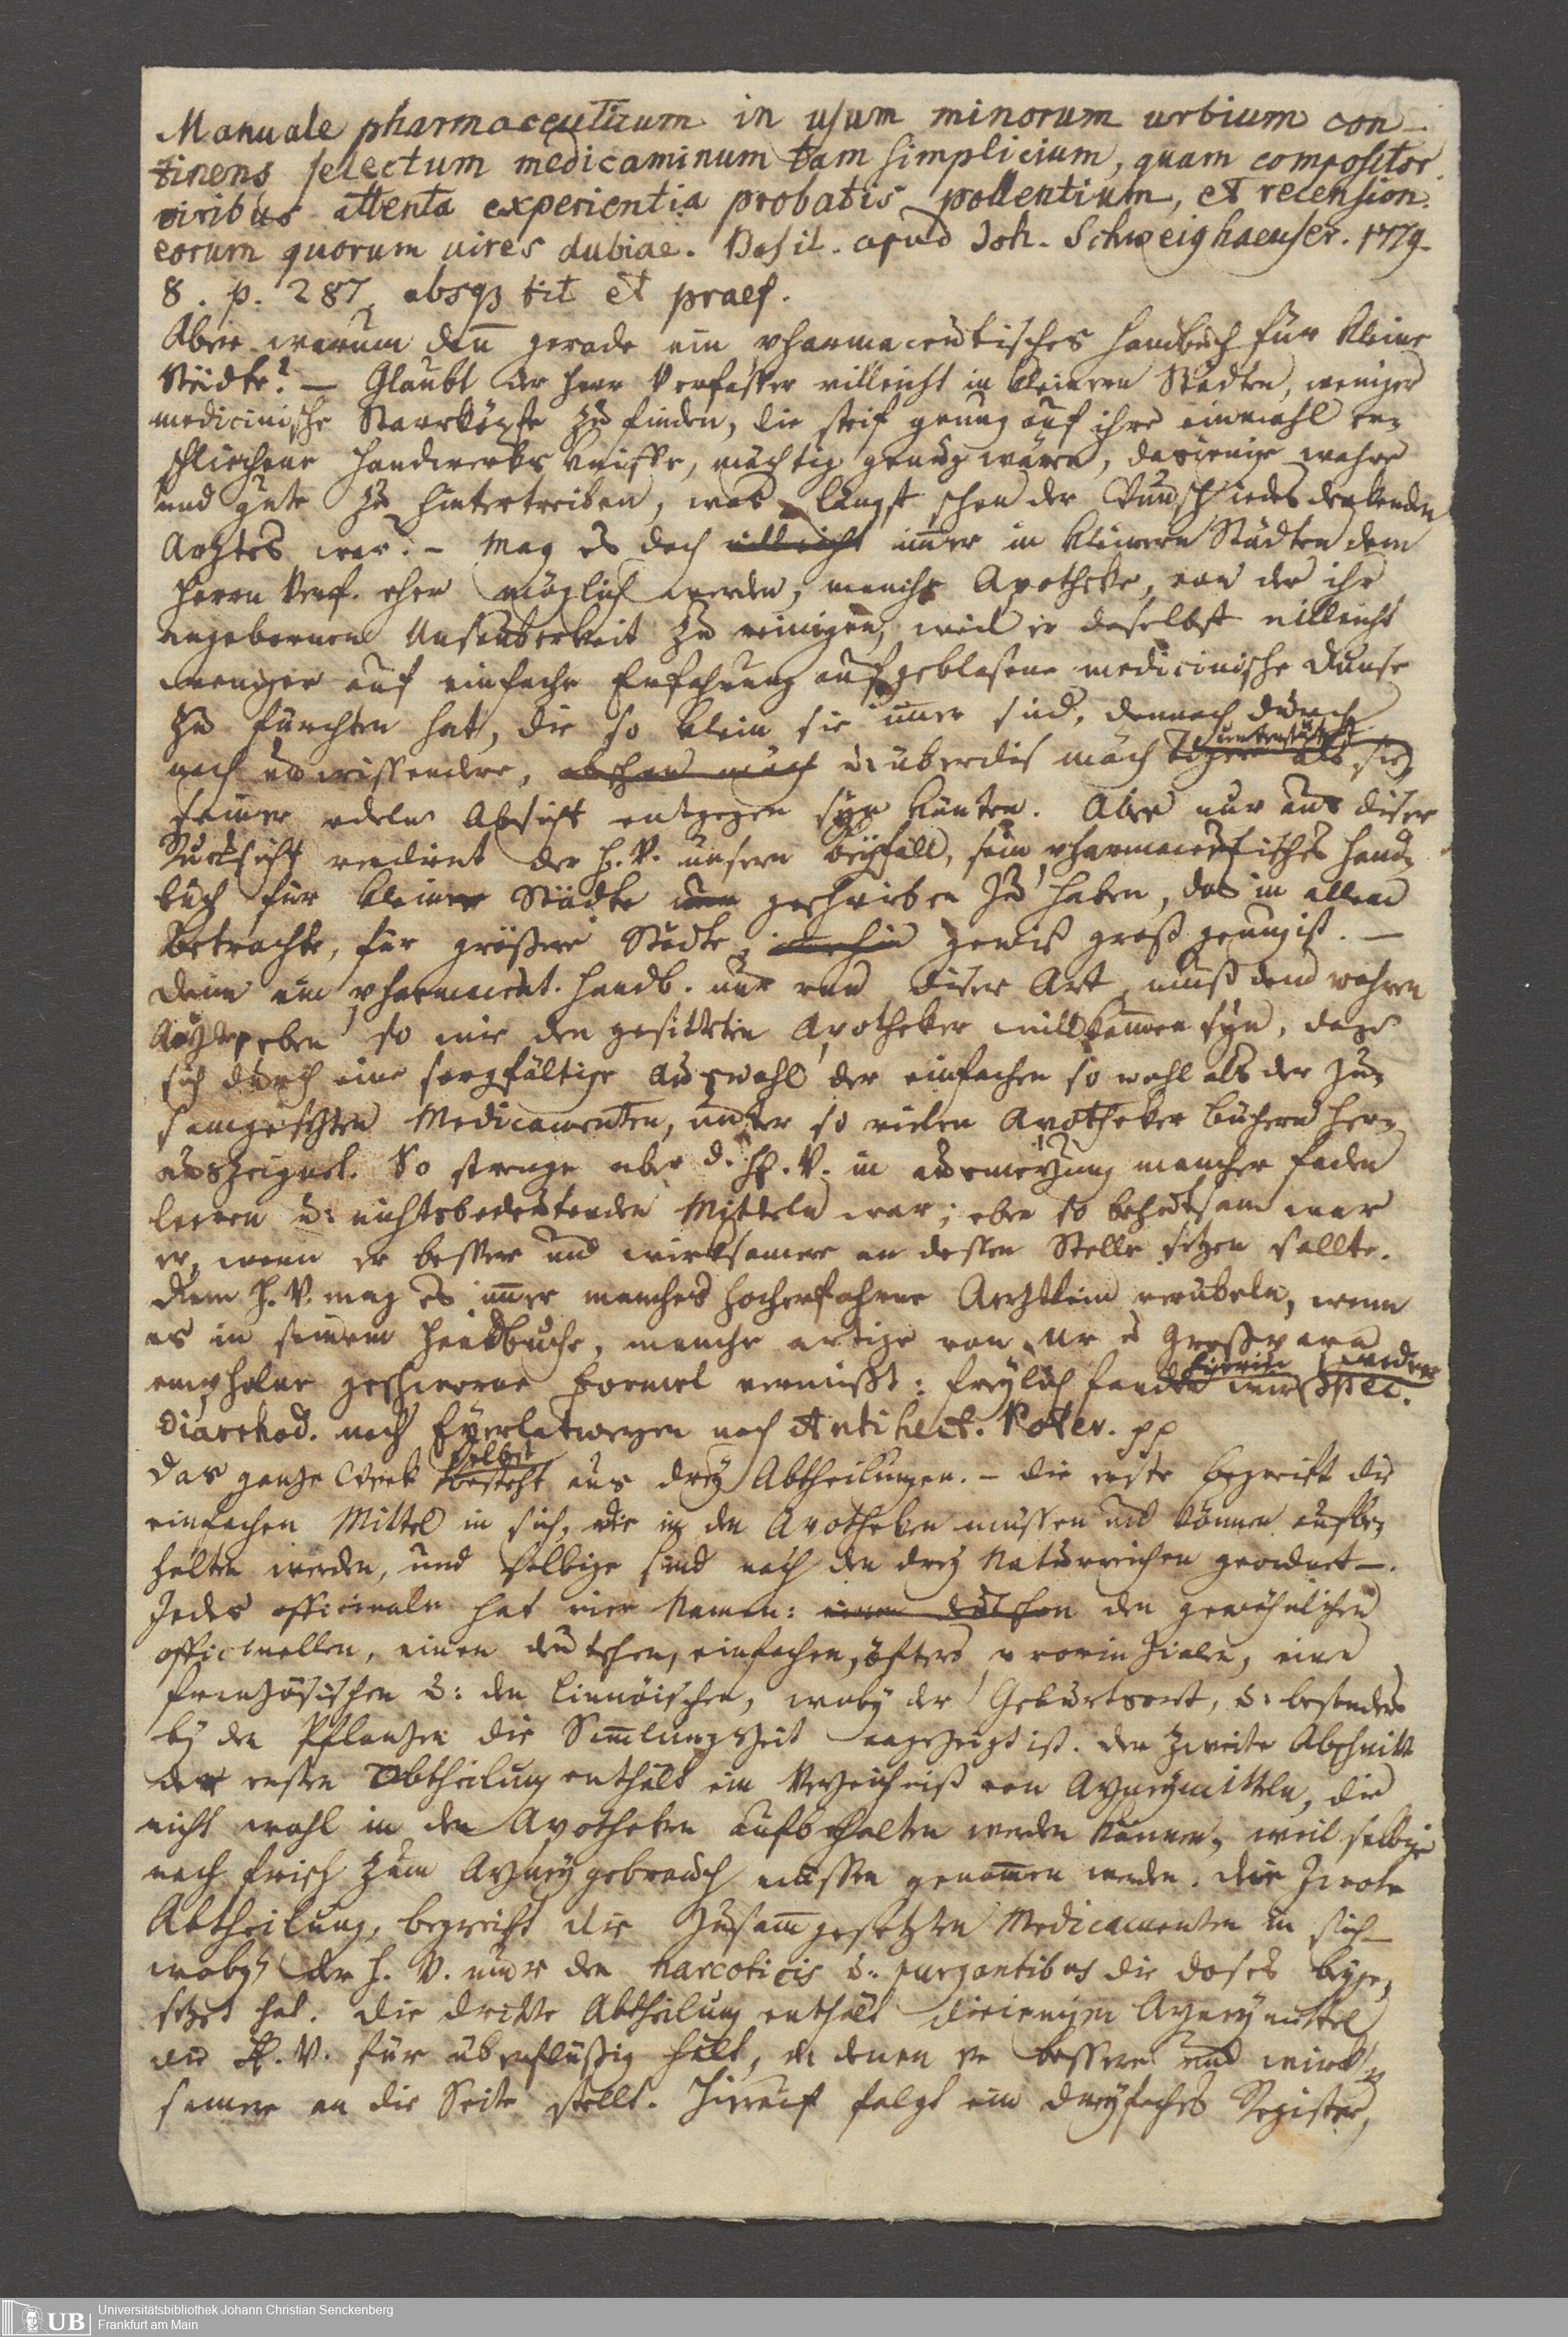 Manuale pharmaceuticum in usum minorum urbium con-
tinens selectum medicaminum tam simplicium, quam compositor.
viribus attenta experientia probatis pollentium, et recension.
eorum quorum vires dubiae. Basil. apud Joh. Schweighaeuser. 1779.
8. p. 287, absq tit et praef.
Aber warum den̄ gerade ein pharmaceutisches Handbuch für kleine
Städte? — Glaubt der Herr Verfasser villeicht in kleineren Städten, weniger
medicinische Starrköpfe zu finden, die steif genug auf ihre einmahl er-
schlichene Handwerks Kniffe, mächtig genug wären, dasienige wahre
und gute zu hintertreiben, was längst schon der Wunsch iedes denkenden
Arztes war. – Mag es doch villeicht im̄er in kleinern Städten dem
Herrn Verf. eher möglich werden, manche Apotheke, von der ihr
angebornen Unsauberkeit zu reinigen, weil er daselbst villeicht
weniger auf einfache Erfahrung aufgeblasene medicinische Dunse
zu fürchten hat, die so klein sie im̄er sind, dennoch durch
noch unwissendere, u: überdis mächtigere als sie unterstützt
seiner edeln Absicht entgegen syn könten. Aber nur aus diser
Rücksicht verdient der H. V. unsern Beyfall, sein pharmaceutisches Hand-
buch für kleinere Städte geschrieben zu haben, das in allem
Betrachte, für größere Städte, gewis groß genug ist. —
Denn ein pharmaceut. Handb. nur von diser Art, muß dem wahren
Arzte eben so wie den gesitteten Apotheker willkom̄en syn, dazs
sich durch eine sorgfältige Auswahl der einfachen so wohl als der zu-
samgesetzten Medicamenten, unter so vielen Apotheker büchern her-
auszeignet. So strenge aber d. H. V. in Ausmerzung mancher faden
leeren u: nichtsbedeutenden Mitteln war; eben so behutsam war
er, wenn er bessere und wirksamere an dessen Stelle setzen sollte.
Dem H. V. mag es im̄er manches hocherfahrne Aerztlein verübeln, wenn
es in seinem Handbuche, manche artige von Ur u Großpapa
empholne geschworne Formel vermißt: freylich fanden hierin wir weder Spec.
Diarrhod. noch Eyerlatwergen noch Antihect. Poter. pp
Das ganze Werk selbst besteht aus drey Abtheilungen. – die erste begreift die
einfachen Mittel in sich, die in den Apotheken müssen und können aufbe-
halten werden, und selbige sind nach den drey Naturreichen geordnet —.
Jedes officinale hat vier Namen: einen deutschen den gewöhnlichen
officinellen, einen deutschen, einfachen, öfters provinzialen, einen
französischen u: den linnäischen, woby der Geburtsort, u: besonders
by den Pflanzen die Sam̄lungszeit angezeigt ist. Der zweite Abschnitt
der ersten Abtheilung enthält ein Verzeichniß von Arzneymitteln, die
nicht wohl in den Apotheken aufbehalten werden können, weil selbige
noch frisch zum Arzneygebrauch müssen genom̄en werden. Die zwote
Abtheilung, begreift die zusam̄gesetzten Medicamenten in sich —
woby der H. V. nur den narcoticis u: purgantibus die doses byge-
setzet hat. Die dritte Abtheilung enthält dieienigen Arzneymittel
die H. V. für überflüßig hält, u denen er bessere und wirk-
samere an die Seite stellt. Hierauf folgt ein dreyfaches Register,
Universitätsbibliothek Johann Christian Senckenberg
Frankfurt am Main
UB